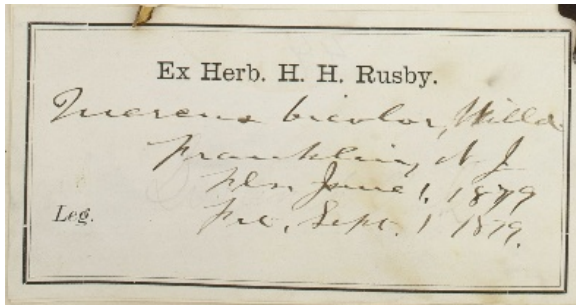 Ex Herb. H. H. Rusby.
Quercus bicolor, Willd
Franklin, N. J.
Fls. June 1, 1879
Leg.
Frt. Sept. 1 1879.